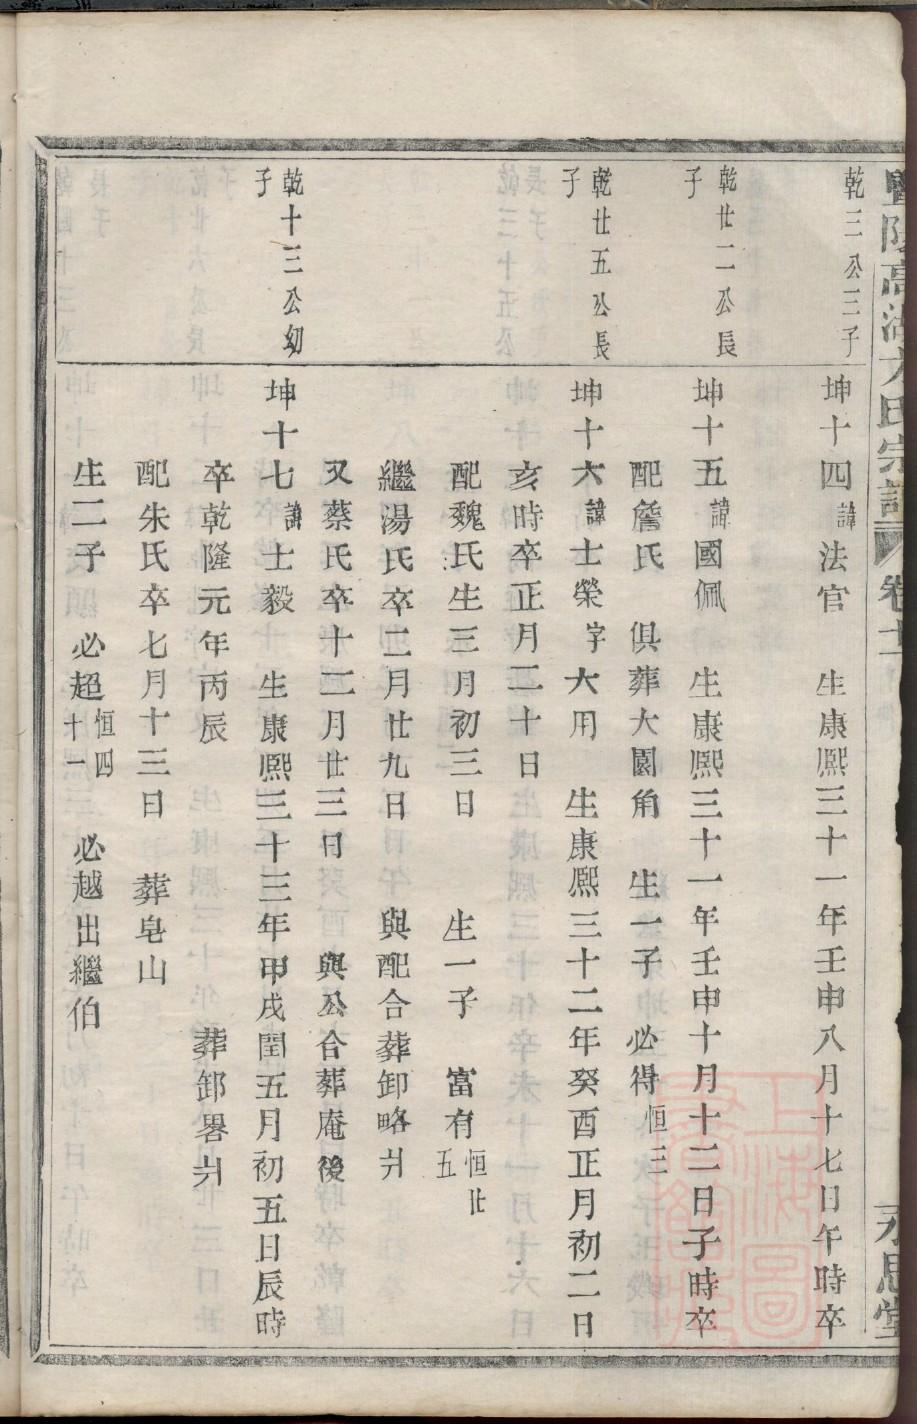 乾三公三子
坤十四諱法官 生康熙三十一年壬申八月十七日午時卒
乾廿二公長子
坤十五諱國佩 生康熙三十一年壬申十月十二日子時卒
配詹氏 俱葬大園角 生一子 必得恒三
乾廿五公長子
坤十六諱士榮字大用 生康熙三十二年癸酉正月初二日
亥時卒正月二十日
配魏氏生三月初三日 生一子 富有恒廿五
繼湯氏卒二月廿九日 與配合葬卸略爿
又蔡氏卒十二月廿三日 與公合葬庵後
乾十三公幼子
坤十七諱士毅 生康熙三十三年甲戌閏五月初五日辰時
卒乾隆元年丙辰 葬卸畧爿
配朱氏卒七月十三日 葬皂山
生二子 必超恒四十一 必越出繼伯
宗譜 卷十二 永思堂